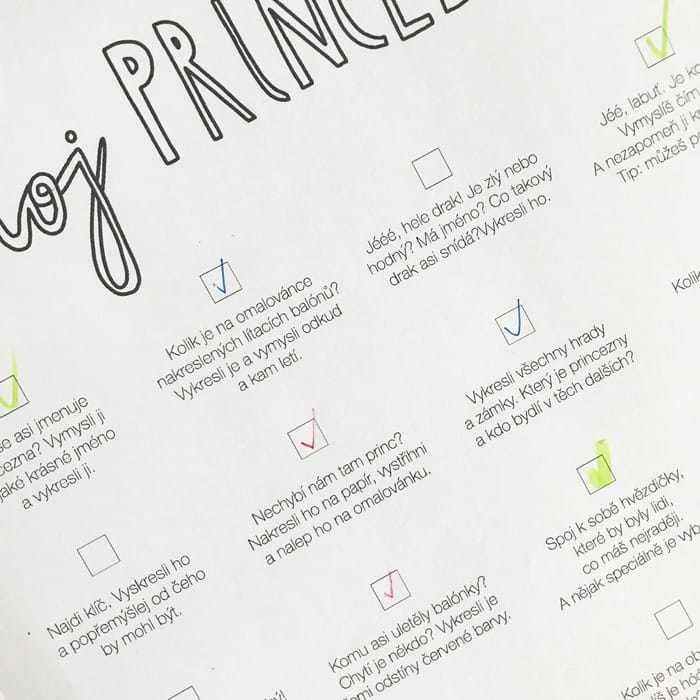 oj PRINCE
Jéé, labuť. Je
Vymyslíš čím
A nezapomeň ji
Tip: můžeš
Jééé, hele drak! Je zlý nebo
hodný? Má jméno? Co takový
drak asi snídá?Vykresli ho.
Kolik
Kolik je na omalovánce
nakreslených lítacích balónů?
Vykresli je a vymysli odkud
a kam letí.
Vykresli všechny hrady
a zámky. Který je princezny
a kdo bydlí v těch dalších?
se asi jmenuje
cezna? Vymysli jí
jaké krásné jméno
a vykresli ji.
Nechybí nám tam princ?
Nakresli ho na papír, vystřihni
a nalep ho na omalovánku.
Spoj k sobě hvězdičky,
které by byly lidi,
co máš nejraději.
A nějak speciálně je
Najdi klíč. Vyskresli ho
a popřemýšlej od čeho
by mohl být.
Komu asi uletěly balónky?
Chytí je někdo? Vykresli je
všemi odstíny červené barvy.
Kolik je na